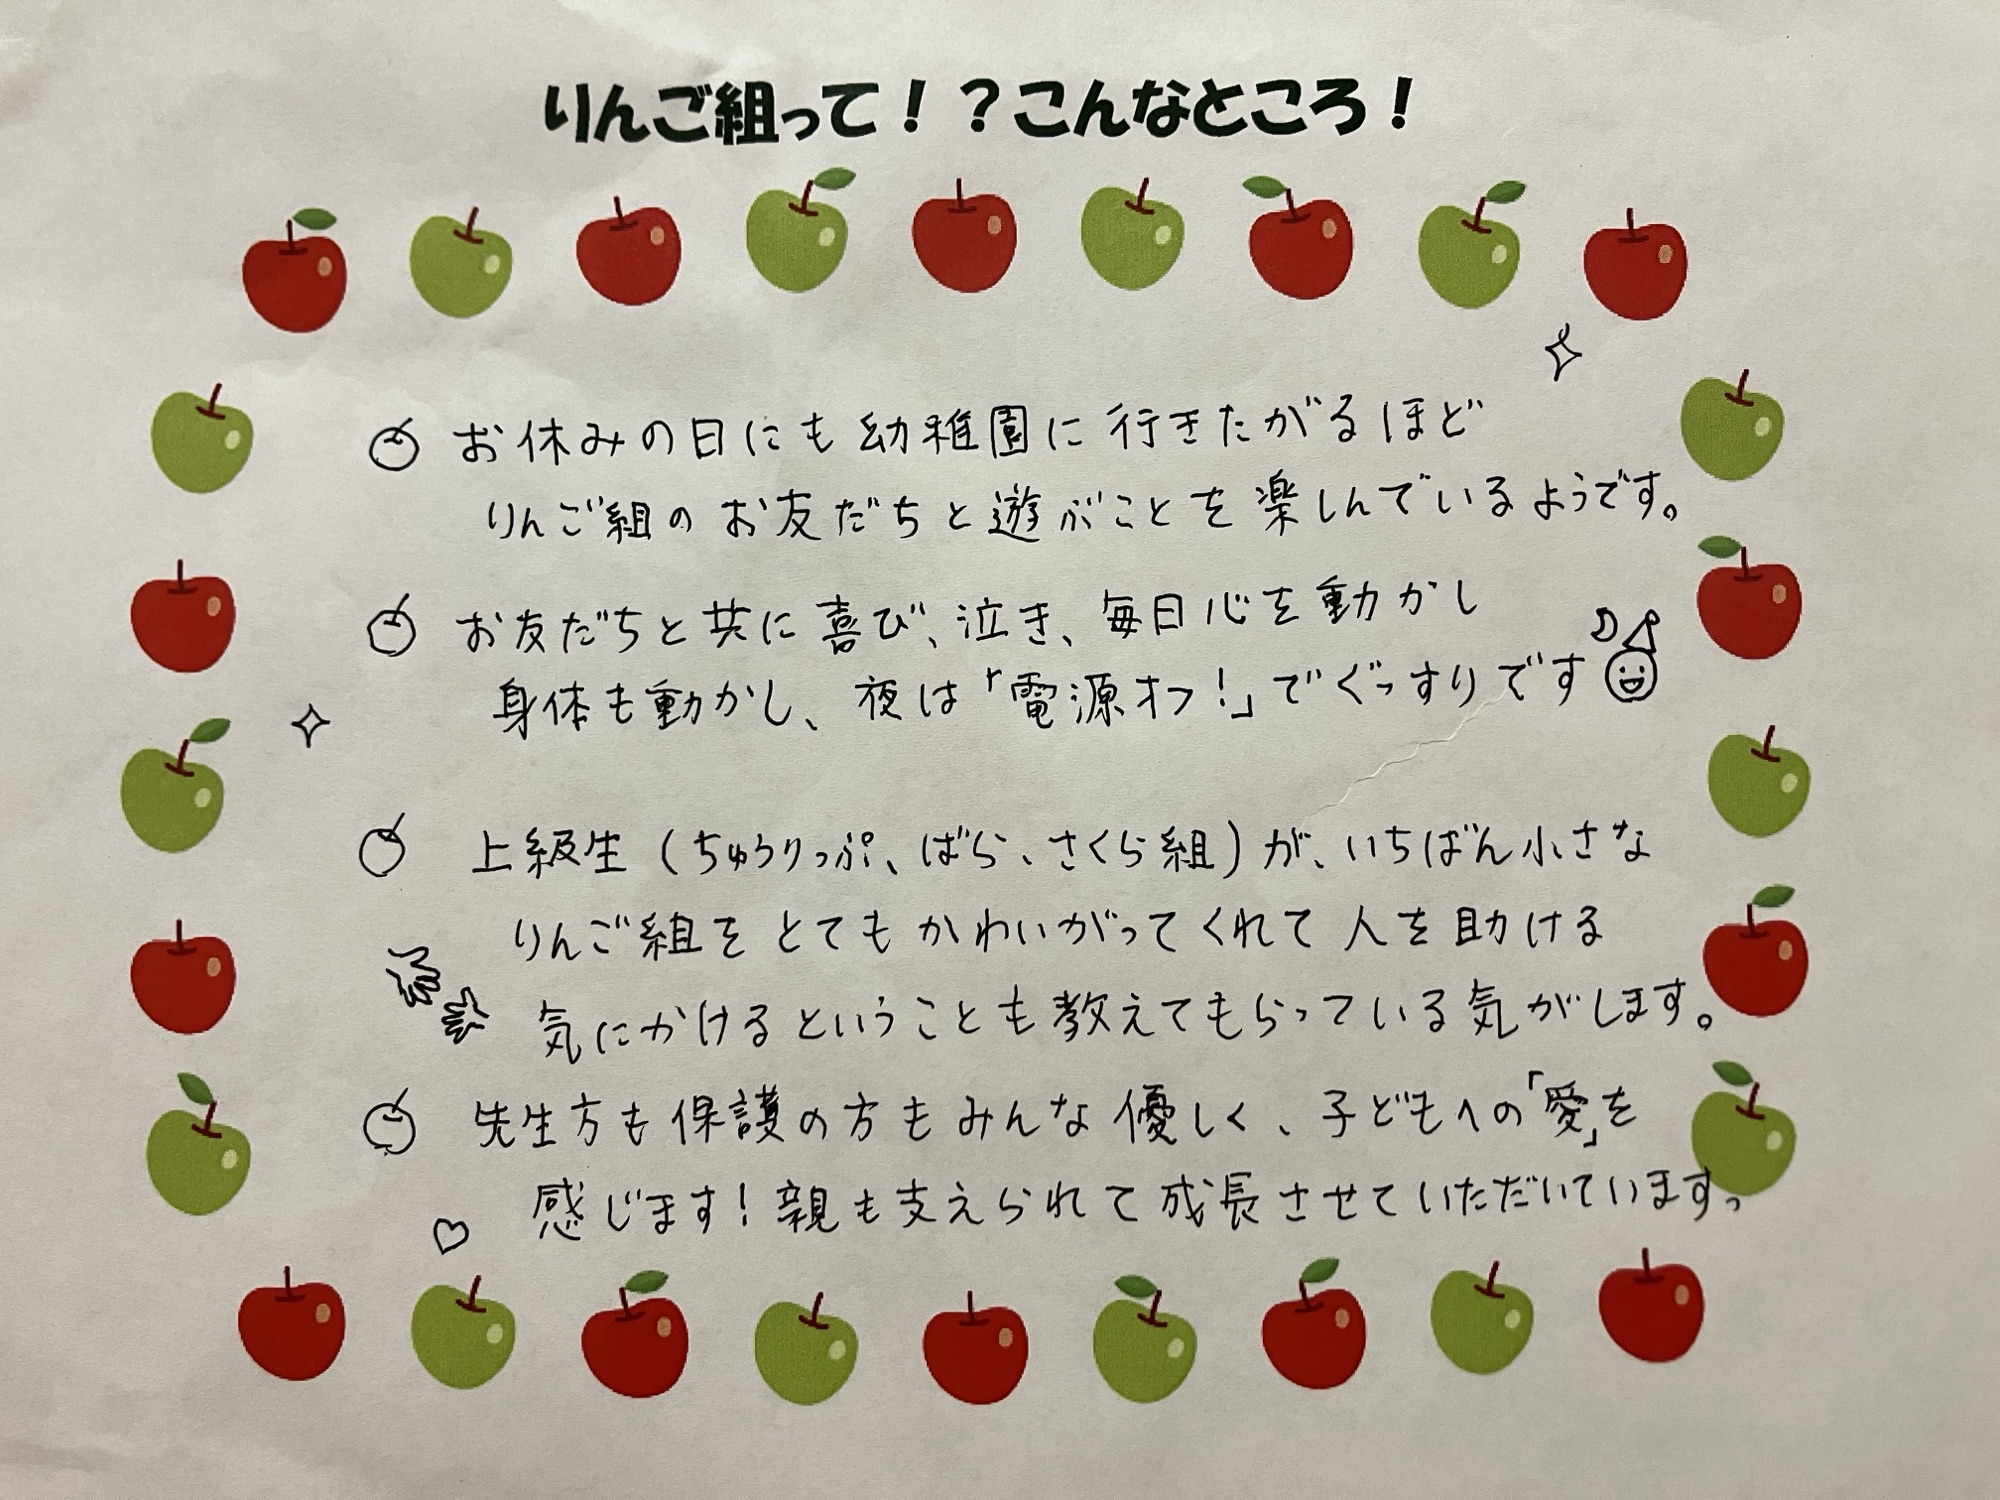 りんご組って！？こんなところ！
お休みの日にも幼稚園に行きたがるほど
りんご組のお友だちと遊ぶことを楽しんでいるようです。
お友だちと共に喜び、泣き、毎日心を動かし
身体も動かし、夜は「電源オフ！」でぐっすりです
上級生（ちゅうりっぷ、ばら、さくら組）が、いちばん小さな
りんご組をとてもかわいがってくれて人を助ける
気にかけるということも教えてもらっている気がします。
先生方も保護の方もみんな優しく、子どもへの「愛」を
感じます！親も支えられて成長させていただいています。